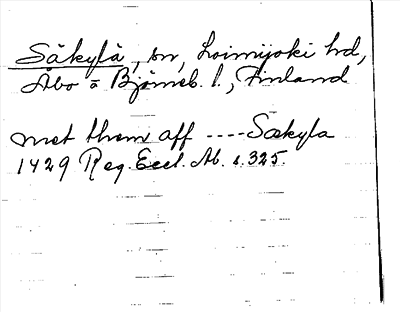 Säkylä, sn, Loimijoki hd,
Åbo o Björneb. l., Finland
met them aff ---- Sækyla
1429 Reg. Eccl. Ab. s. 325.